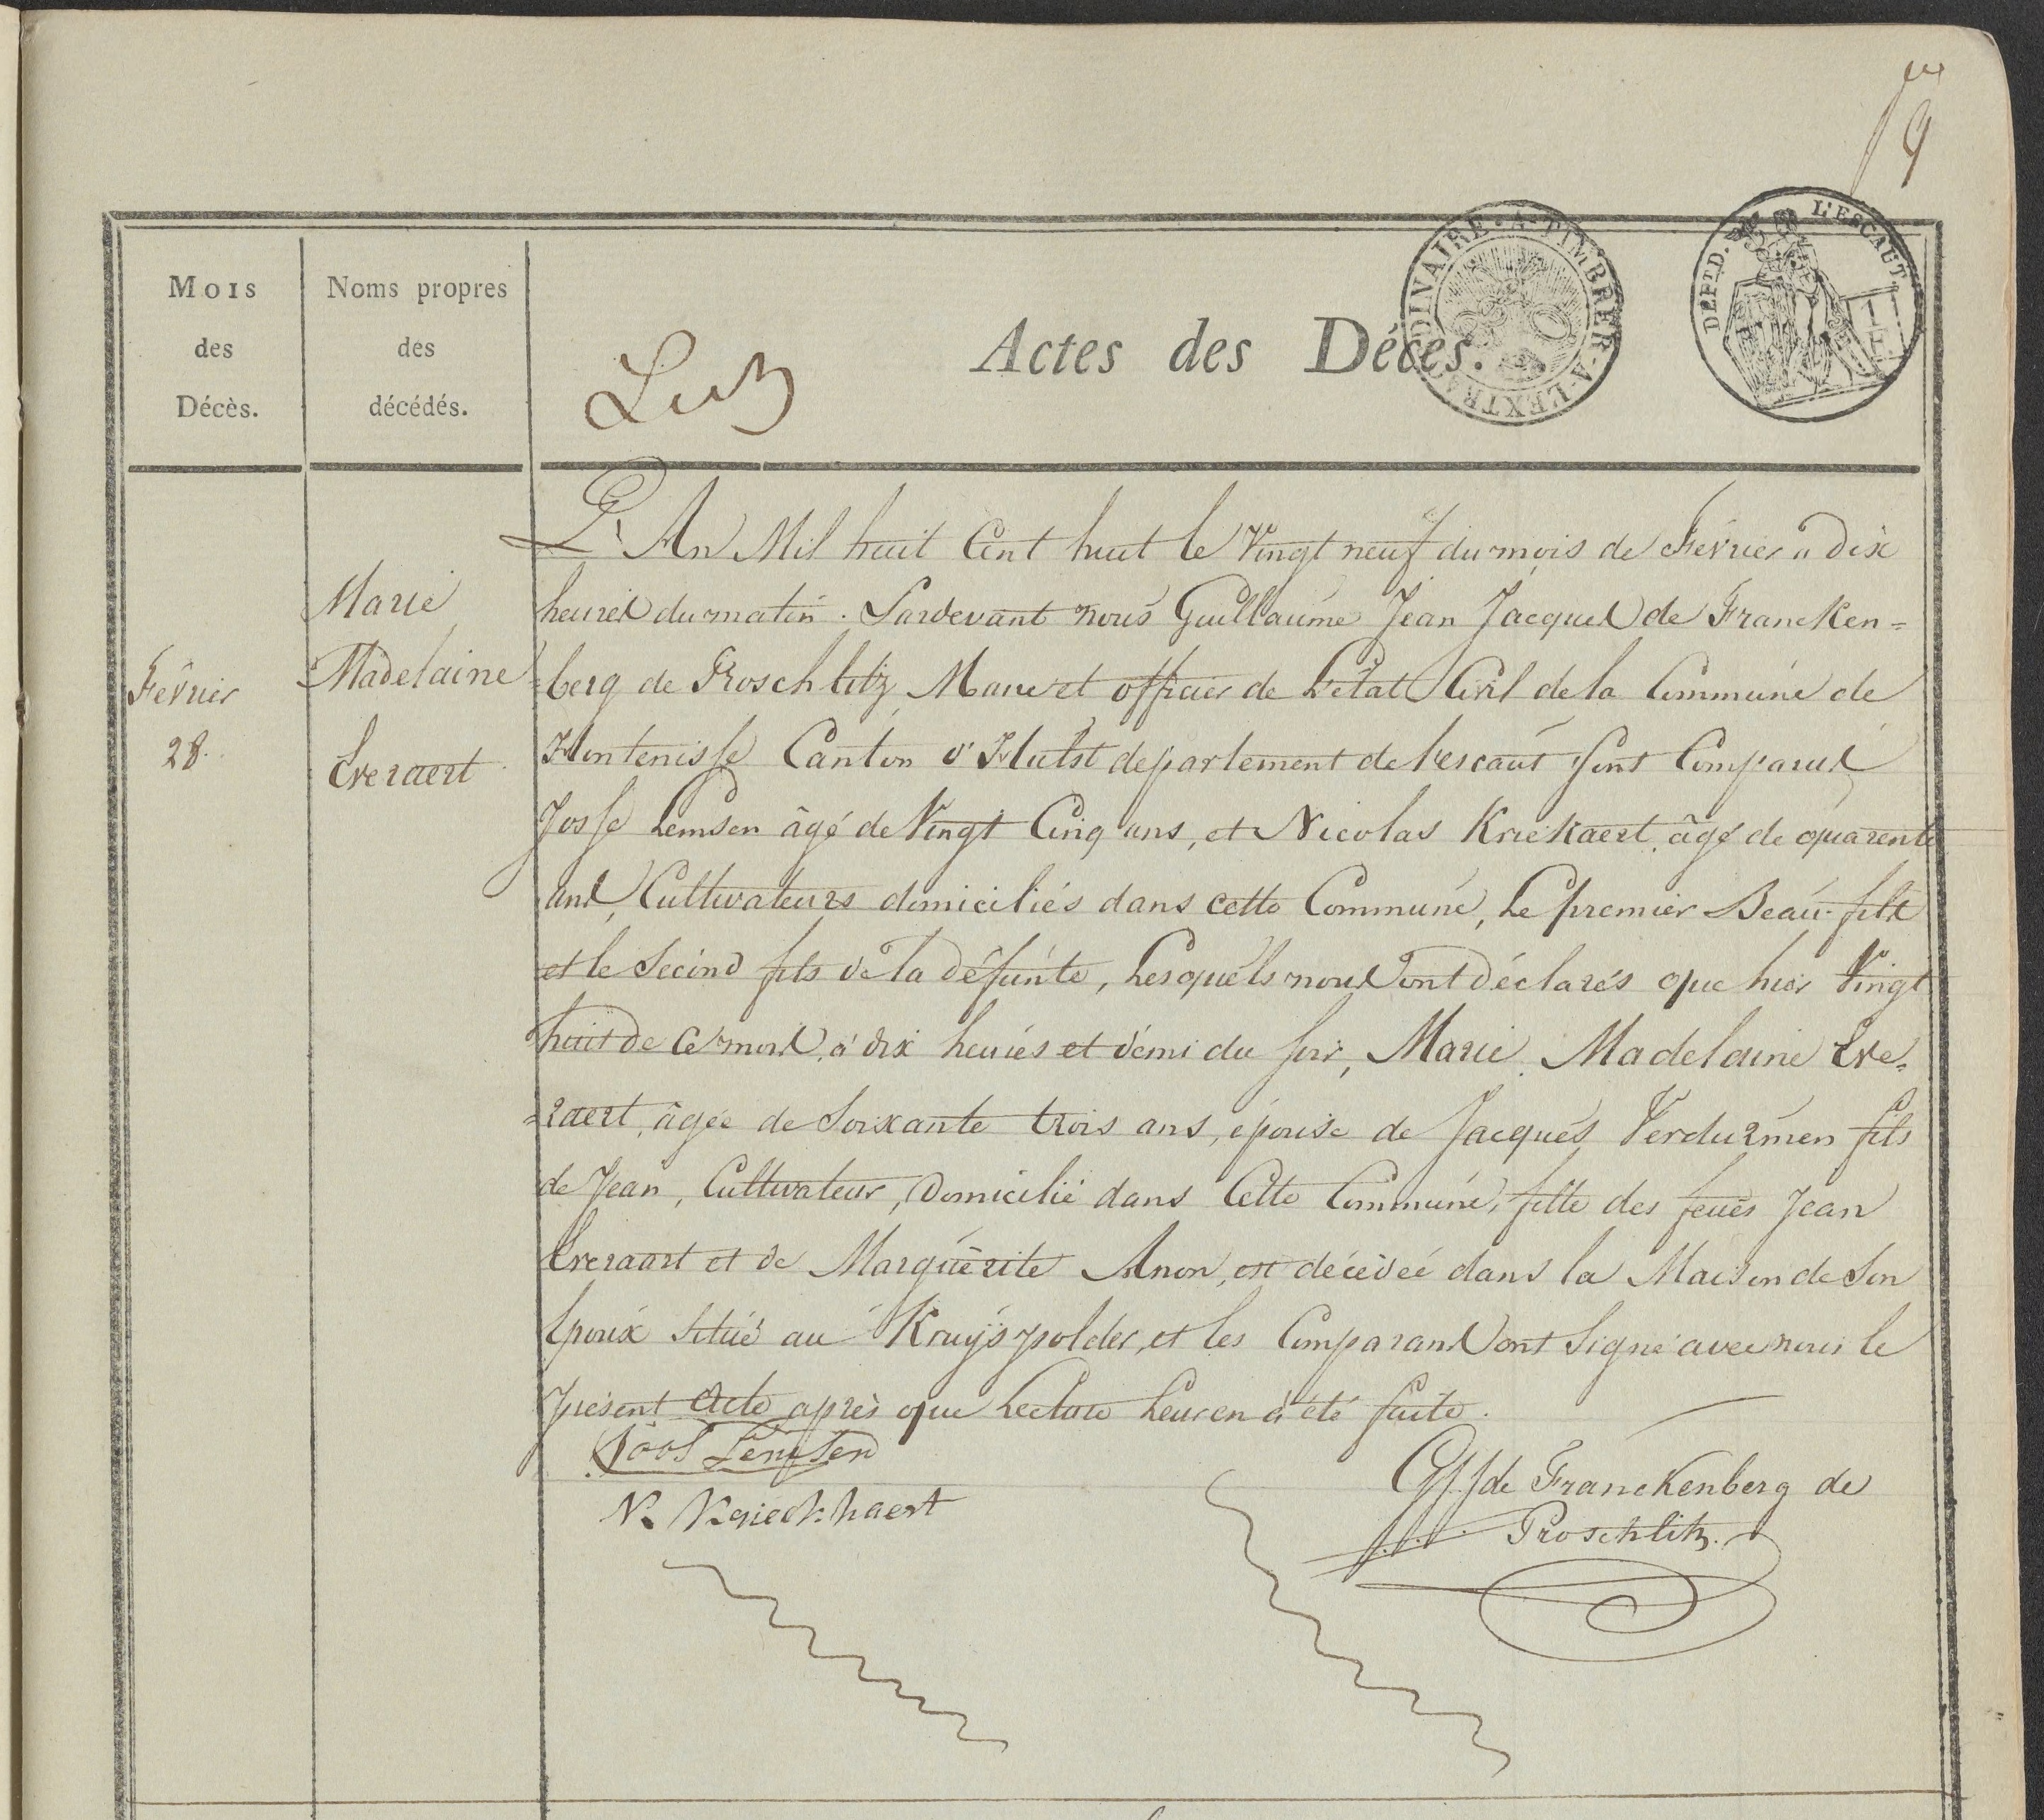 9
DEPT. D. L'ESCAUT
A · TIMBRER · A · L'EXTRAORDINAIRE
Mois
des
Décès.
Noms propres
des
décédés.
Actes des Décès.
Février
28.
Marie
Madelaine
Everaert
L'An Mil huit Cent huit le Vingt neuf du mois de Février a dix
heures du matin. Pardevant nous Guillaume Jean Jacques de Francken=
=berg de Proschlitz, Maire et officier de L'état Civil de la Commune de
Hontenisse Canton d'Hulst departement de l'escaut sont Comparus
Josse Lemsen âgé de Vingt Cinq ans, et Nicolas Kriekaert, âgé de quarente
ans, Cultivateurs domiciliés dans cette Commune, Le premier Beau-fils
et le Second fils de la défunte, Lesquels nous ont déclarés que hier Vingt
huit de Ce mois, à dix heures et demi du soir, Marie Madelaine Eve=
=raert, âgée de Soixante trois ans, épouse de Jacques Verdurmen fils
de Jean, Cultivateur, Domicilié dans Cette Commune, fille des feues Jean
Everaart et de Marguérite Anon, est décédée dans la Maison de Son
Epoux situé au Kruijspolder, et les Comparans ont Signé avec nous le
présent Acte après que Lecture Leur en a été faite.
Joos Lemsen
N. Krieckhaert
GJJ de Franckenberg de
Proschlitz.